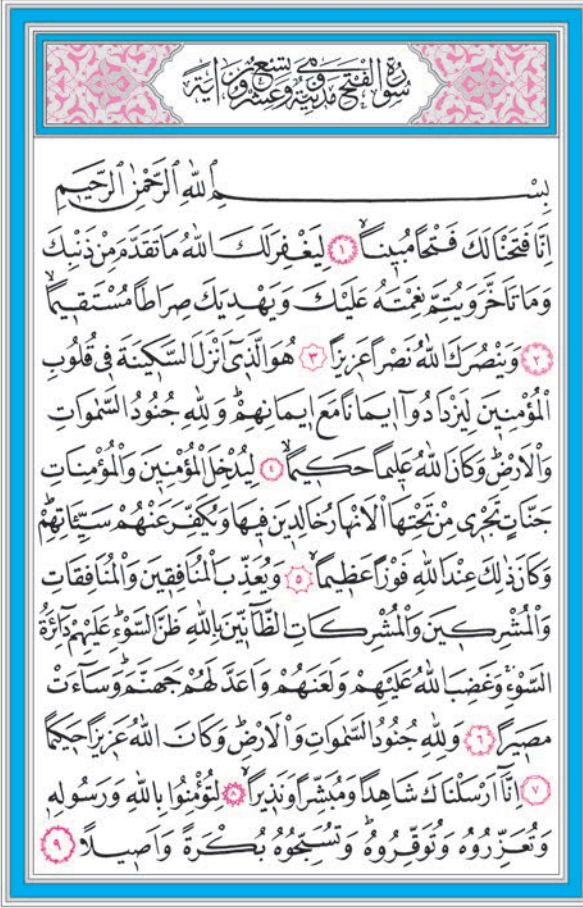 سُورَةُ الْفَتْحِ مَدَنِيَّةٌ وَهِيَ تِسْعٌ وَعِشْرُونَ اٰيَةً
بِسْمِ اللّٰهِ الرَّحْمٰنِ الرَّحِيمِ
اِنَّا فَتَحْنَا لَكَ فَتْحًا مُبِينًاۙ ﴿١﴾ لِيَغْفِرَ لَكَ اللّٰهُ مَا تَقَدَّمَ مِنْ ذَنْبِكَ
وَمَا تَاَخَّرَ وَيُتِمَّ نِعْمَتَهُ عَلَيْكَ وَيَهْدِيَكَ صِرَاطًا مُسْتَقِيمًاۙ
﴿٢﴾ وَيَنْصُرَكَ اللّٰهُ نَصْرًا عَزِيزًا ﴿٣﴾ هُوَ الَّذِٓي اَنْزَلَ السَّكِينَةَ فِي قُلُوبِ
الْمُؤْمِنِينَ لِيَزْدَادُٓوا اِيمَانًا مَعَ اِيمَانِهِمْۜ وَلِلّٰهِ جُنُودُ السَّمٰوَاتِ
وَالْاَرْضِۜ وَكَانَ اللّٰهُ عَلِيمًا حَكِيمًاۙ ﴿٤﴾ لِيُدْخِلَ الْمُؤْمِنِينَ وَالْمُؤْمِنَاتِ
جَنَّاتٍ تَجْرِي مِنْ تَحْتِهَا الْاَنْهَارُ خَالِدِينَ فِيهَا وَيُكَفِّرَ عَنْهُمْ سَيِّـَٔاتِهِمْۜ
وَكَانَ ذٰلِكَ عِنْدَ اللّٰهِ فَوْزًا عَظِيمًاۙ ﴿٥﴾ وَيُعَذِّبَ الْمُنَافِقِينَ وَالْمُنَافِقَاتِ
وَالْمُشْرِكِينَ وَالْمُشْرِكَاتِ الظَّٓانِّينَ بِاللّٰهِ ظَنَّ السَّوْءِۜ عَلَيْهِمْ دَٓائِرَةُ
السَّوْءِۚ وَغَضِبَ اللّٰهُ عَلَيْهِمْ وَلَعَنَهُمْ وَاَعَدَّ لَهُمْ جَهَنَّمَۜ وَسَٓاءَتْ
مَصِيرًا ﴿٦﴾ وَلِلّٰهِ جُنُودُ السَّمٰوَاتِ وَالْاَرْضِۜ وَكَانَ اللّٰهُ عَزِيزًا حَكِيمًا
﴿٧﴾ اِنَّٓا اَرْسَلْنَاكَ شَاهِدًا وَمُبَشِّرًا وَنَذِيرًاۙ ﴿٨﴾ لِتُؤْمِنُوا بِاللّٰهِ وَرَسُولِهِ
وَتُعَزِّرُوهُ وَتُوَقِّرُوهُۜ وَتُسَبِّحُوهُ بُكْرَةً وَاَصِيلًا ﴿٩﴾